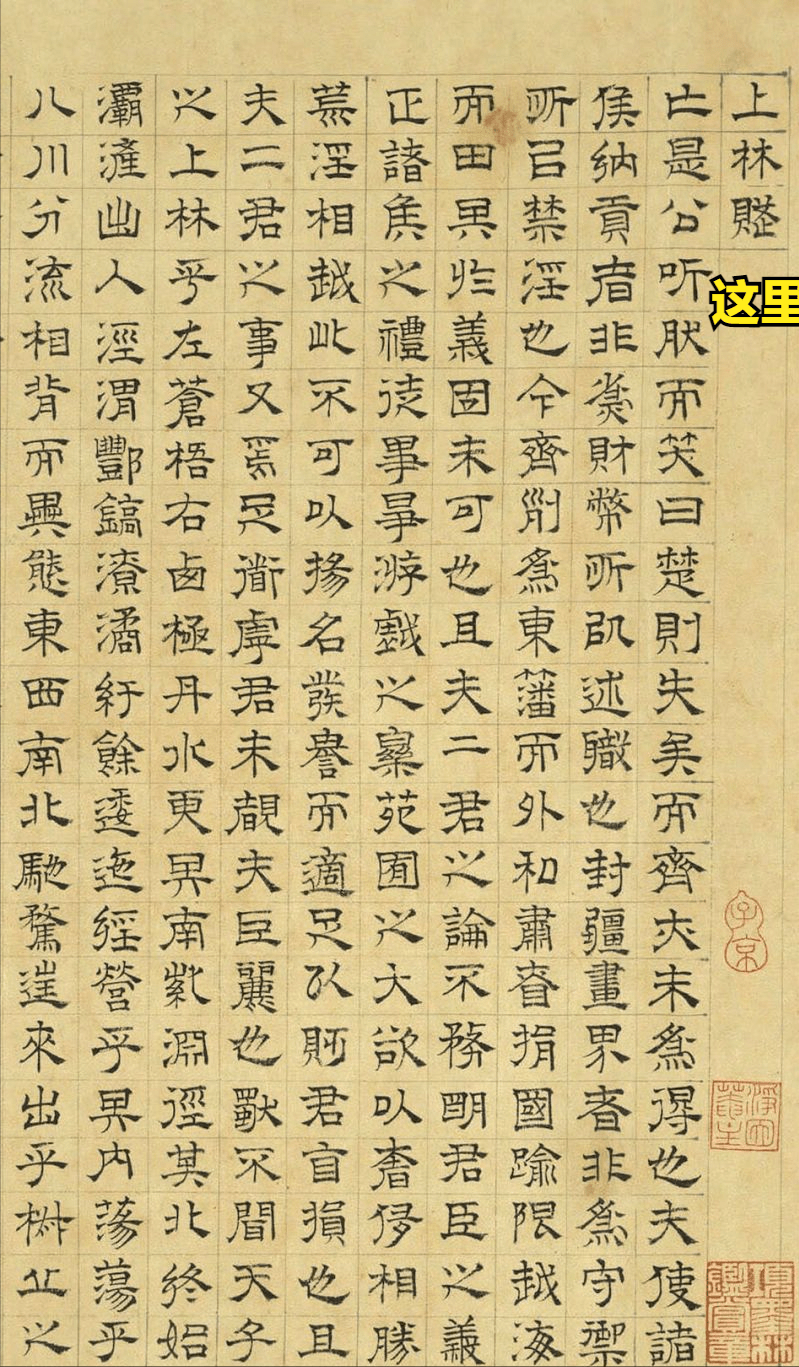 上林賦
亡是公听肰而笑曰楚則失矣而齊夾未爲得也夫使諸
矦納貢者非爲財幣所㠯述職也封疆畫界者非爲守禦
所㠯禁淫也今齊列爲東藩而外和肅眘捐國踰限越海
而田其於義固未可也且夫二君之論不務明君臣之義
正諸矦之禮徒事爭游戲之樂苑囿之大欲以奢侈相勝
荒淫相越此不可以揚名發譽而適足以貶君自損也且
夫二君之事又焉足道虖君未覩夫巨麗也獸不聞天子
之上林乎左蒼梧右卤極丹水更其南紫淵徑其北終始
灞滻出入涇渭酆鎬潦潏紆餘逶迤經營乎其內蕩蕩乎
八川分流相背而異態東西南北馳騖往來出乎椒丘之
这里
子京